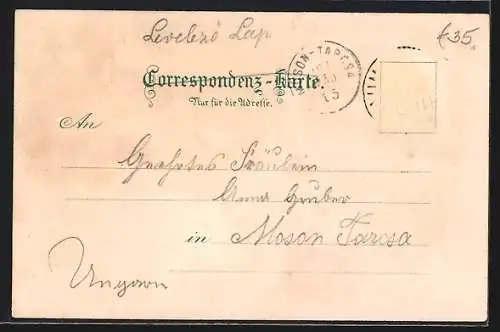 Levelező Lap
£35.
MOSON-TARCSA
15
Correspondenz-Karte.
Nur für die Adresse.
An
Geehrtes Fräulein
Anna Gruber
in Moson Tarcsa
Ungarn